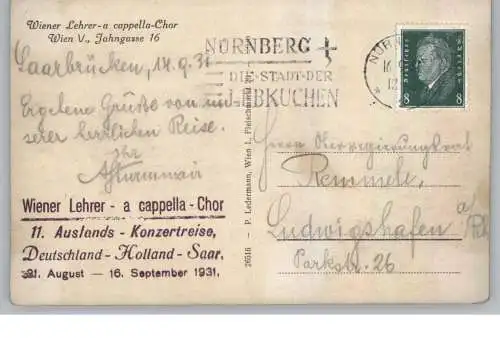 Wiener Lehrer-a cappella-Chor
Wien V., Jahngasse 16
Saarbrücken, 14.9.31
Ergebene Grüße von un-
serer herrlichen Reise.
Ihr
Wiener Lehrer - a cappella - Chor
11. Auslands - Konzertreise,
Deutschland - Holland - Saar,
21. August — 16. September 1931.
NÜRNBERG
DIE·STADT·DER
LEBKUCHEN
26516 - P. Ledermann, Wien I., Fleischmarkt
NÜR
8 8
Herrn Oberregierungsrat
Remmele,
Ludwigshafen a/Rh
Parkstr. 26